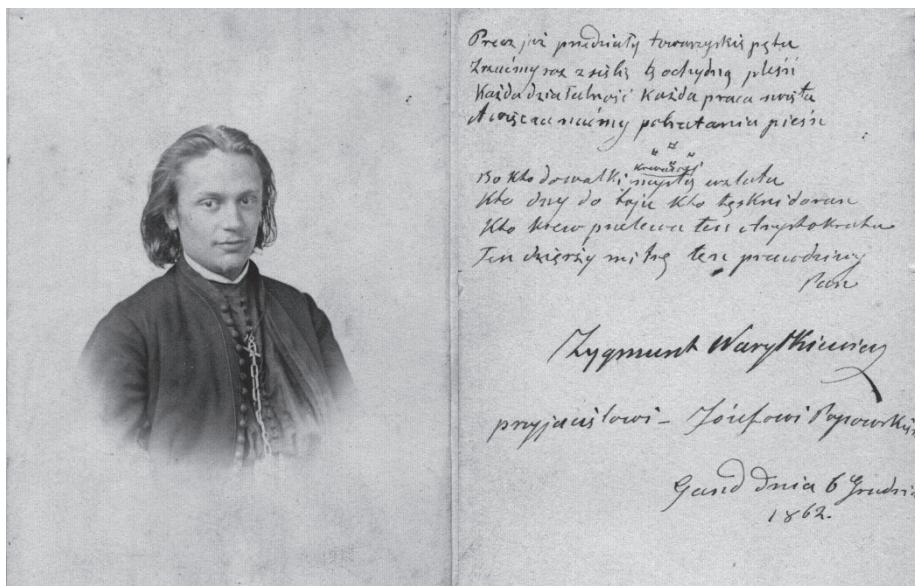 Precz już przedziały towarzyskie pęta
Zrzućmy raz z siebie tę ochydną pleśń
Każda działalność każda praca święta
A więc zanućmy pobratania pieśń
Bo kto do walki krwawszej wzlata
Kto dąży do boju kto tęskni do ran
Kto krew przelewa ten Arystokrata
Ten dzierży mitrę ten prawdziwy
Pan
Zygmunt Warytkiewicz
przyjacielowi – Józefowi Popowski
Gand dnia 6 Grudni
1862.